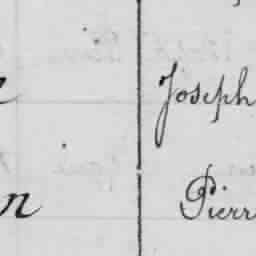 Joseph
Pierr